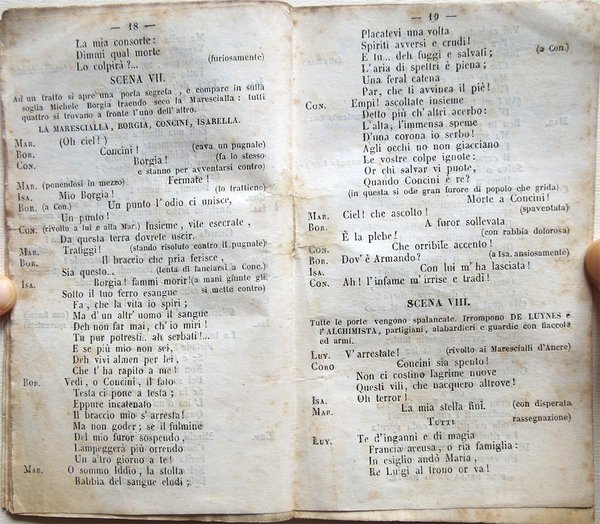 — 18 —
La mia consorte:
Dimmi qual morte
Lo colpirà?... (furiosamente)
SCENA VII.
Ad un tratto si apre una porta segreta, e compare in sulla
soglia Michele Borgia traendo seco la Marescialla: tutti
quattro si trovano a fronte l'uno dell'altro.
LA MARESCIALLA, BORGIA, CONCINI, ISABELLA.
MAR. (Oh ciel!)
BOR. Concini! (cava un pugnale)
CON. Borgia! (fa lo stesso
e stanno per avventarsi contro)
MAR. (ponendosi in mezzo) Fermate!
ISA. Mio Borgia! (lo trattiene)
BOR. (a Con.) Un punto l'odio ci unisce,
Un punto!
CON. (rivolto a lui e alla Mar.) Insieme, vite esecrate,
Da questa terra dovrete uscir.
MAR. Trafiggi! (stando risoluto contro il pugnale)
BOR. Il braccio che pria ferisce,
Sia questo.. (tenta di lanciarsi a Conc.)
ISA. Borgia! fammi morir! (a mani giunte gli
Sotto il tuo ferro esangue si mette contro)
Fa, che la vita io spiri;
Ma d'un altr'uomo il sangue
Deh non far mai, ch'io miri!
Tu pur potresti.. ah serbati!...
E se più mio non sei,
Deh vivi almen per lei,
Che t'ha rapito a me!
BOR. Vedi, o Concini, il fato
Testa ci pone a testa;
Eppure incatenato
Il braccio mio s'arresta!
Ma non goder; se il fulmine
Del mio furor sospendo,
Lampeggerà più orrendo
Un altro giorno a te!
MAR. O sommo Iddio, la stolta
Rabbia del sangue eludi;
— 19 —
Placatevi una volta
Spiriti avversi e crudi!
E tu.. deh fuggi e salvati; (a Con.)
L'aria di spettri è piena;
Una feral catena
Par, che ti avvinca il piè!
CON. Empi! ascoltate insieme
Detto più ch'altri acerbo:
L'alta, l'immensa speme
D'una corona io serbo!
Agli occhi no non giacciano
Le vostre colpe ignote:
Or chi salvar vi puote,
Quando Concini è re?
(in questa si ode gran furore di popolo che grida)
Morte a Concini!
MAR. Ciel! che ascolto! (spaventata)
BOR. A furor sollevata
È la plebe! (con rabbia dolorosa)
CON. Che orribile accento!
BOR. Dov'è Armando? (a Isa. ansiosamente)
ISA. Con lui m'ha lasciata!
CON. Ah! l'infame m'irrise e tradì!
SCENA VIII.
Tutte le porte vengono spalancate. Irrompono DE LUYNES e
l'ALCHIMISTA, partigiani, alabardieri e guardie con fiaccola
ed armi.
LUY. V'arrestate! (rivolto ai Marescialli d'Ancre)
CORO Concini sia spento!
Non ci costino lagrime nuove
Questi vili, che nacquero altrove!
ISA. Oh terror!
MAR. La mia stella finì. (con disperata
TUTTI rassegnazione)
LUY. Te d'inganni e di magia
Francia accusa, o ria famiglia:
In esiglio andò Maria,
Re Luigi al trono or va!